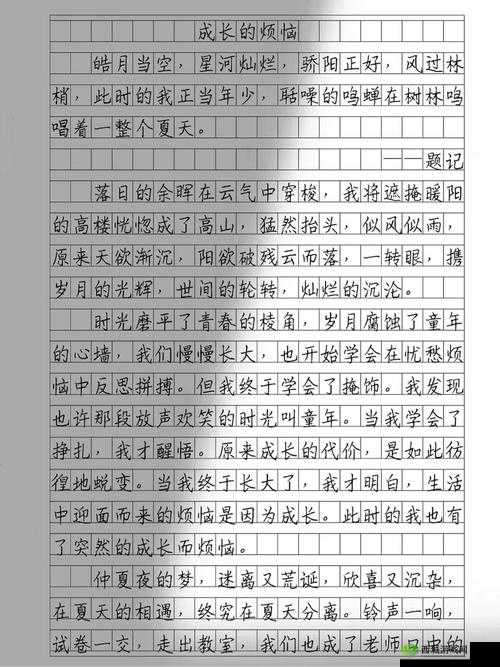 成长的烦恼
皓月当空，星河灿烂，骄阳正好，风过林
梢，此时的我正当年少，聒噪的鸣蝉在树林鸣
唱着一整个夏天。
——题记
落日的余晖在云气中穿梭，我将遮掩暖阳
的高楼恍惚成了高山，猛然抬头，似风似雨，
原来天欲渐沉，阳欲破残云而落，一转眼，携
岁月的光辉，世间的轮转，灿烂的沉沦。
时光磨平了青春的棱角，岁月腐蚀了童年
的心墙，我们慢慢长大，也开始学会在忧愁烦
恼中反思拼搏。但我终于学会了掩饰。我发现
也许那段放声欢笑的时光叫童年。当我学会了
挣扎，我才醒悟。原来成长的代价，是如此彷
徨地蜕变。当我终于长大了，我才明白，生活
中迎面而来的烦恼是因为成长。此时的我也有
了突然的成长而烦恼。
仲夏夜的梦，迷离又荒诞，欣喜又沉杂，
在夏天的相遇，终究在夏天分离。铃声一响，
试卷一交，走出教室，我们也成了老师口中的